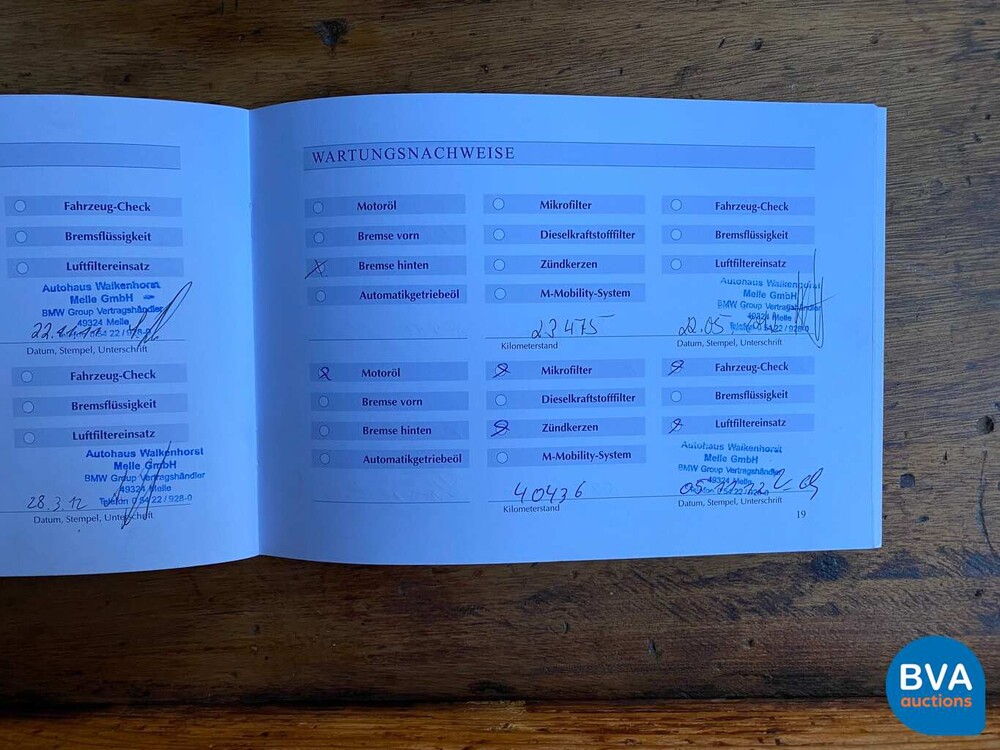 Fahrzeug-Check
Bremsflüssigkeit
Luftfiltereinsatz
Autohaus Walkenhorst
Melle GmbH
BMW Group Vertragshändler
49324 Melle
Telefon 0 54 22 / 928-0
Datum, Stempel, Unterschrift
Fahrzeug-Check
Bremsflüssigkeit
Luftfiltereinsatz
Autohaus Walkenhorst
Melle GmbH
BMW Group Vertragshändler
49324 Melle
28.3.12 Telefon 0 54 22 / 928-0
Datum, Stempel, Unterschrift
WARTUNGSNACHWEISE
Motoröl Mikrofilter Fahrzeug-Check
Bremse vorn Dieselkraftstofffilter Bremsflüssigkeit
Bremse hinten Zündkerzen Luftfiltereinsatz
Automatikgetriebeöl M-Mobility-System
Autohaus Walkenhorst
Melle GmbH
BMW Group Vertragshändler
49324 Melle
Telefon 0 54 22 / 928-0
23475 22.05.
Kilometerstand Datum, Stempel, Unterschrift
Motoröl Mikrofilter Fahrzeug-Check
Bremse vorn Dieselkraftstofffilter Bremsflüssigkeit
Bremse hinten Zündkerzen Luftfiltereinsatz
Automatikgetriebeöl M-Mobility-System
Autohaus Walkenhorst
Melle GmbH
BMW Group Vertragshändler
49324 Melle
Telefon 0 54 22 / 928-0
40436
Kilometerstand Datum, Stempel, Unterschrift
19
BVA
auctions